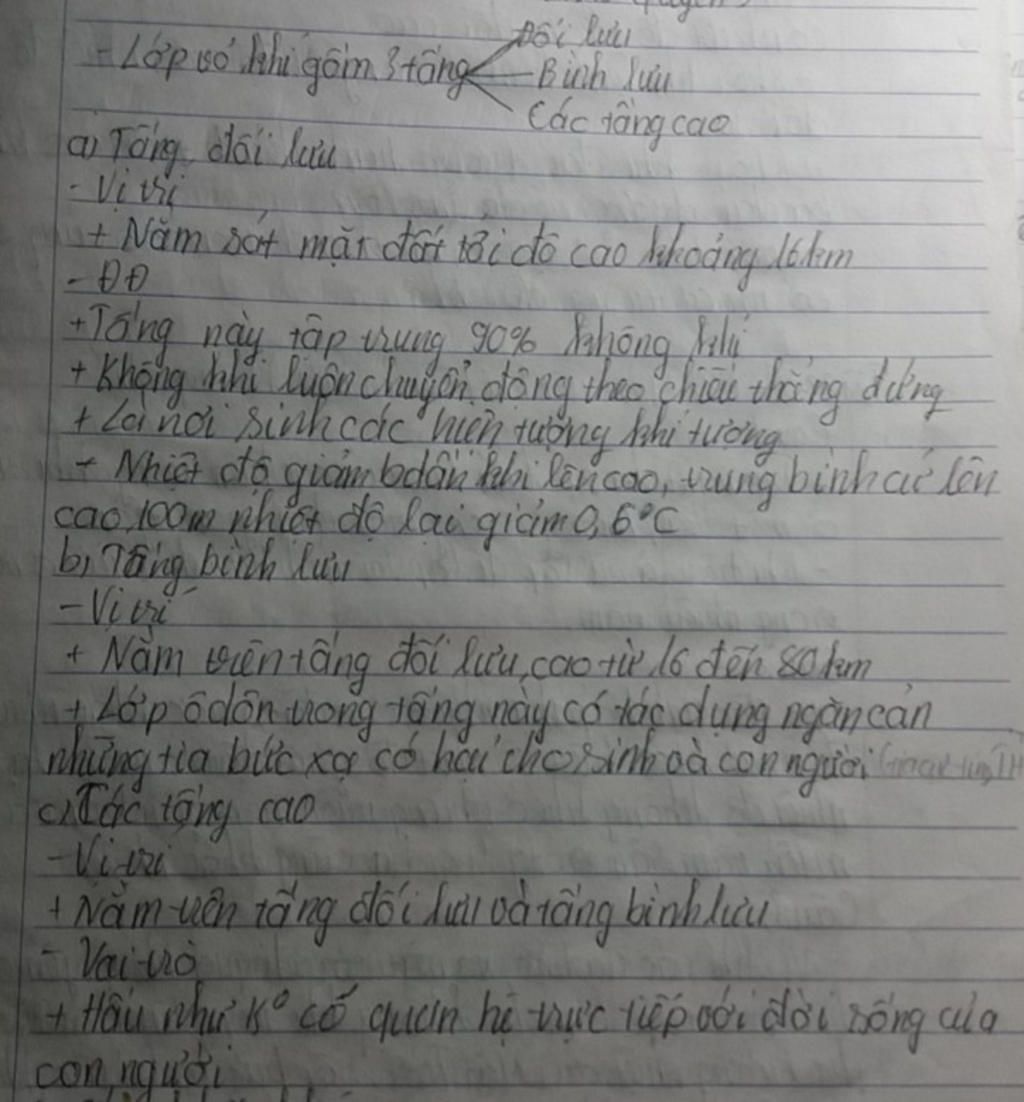 - Lớp vỏ khí gồm 3 tầng
Đối lưu
Bình lưu
Các tầng cao
a) Tầng đối lưu
- Vị trí
+ Nằm sát mặt đất tới độ cao khoảng 16km
- ĐĐ
+ Tầng này tập trung 90% không khí
+ Không khí luôn chuyển động theo chiều thẳng đứng
+ Là nơi sinh các hiện tượng khí tượng
+ Nhiệt độ giảm bdần khi lên cao, trung bình cứ lên
cao 100m nhiệt độ lại giảm 0,6°C
b) Tầng bình lưu
- Vị trí
+ Nằm trên tầng đối lưu, cao từ 16 đến 80km
+ Lớp ôdôn trong tầng này có tác dụng ngăn cản
những tia bức xạ có hại cho sinh và con người
c) Các tầng cao
- Vị trí
+ Nằm trên tầng đối lưu và tầng bình lưu
- Vai trò
+ Hầu như k° có quan hệ trực tiếp với đời sống của
con người